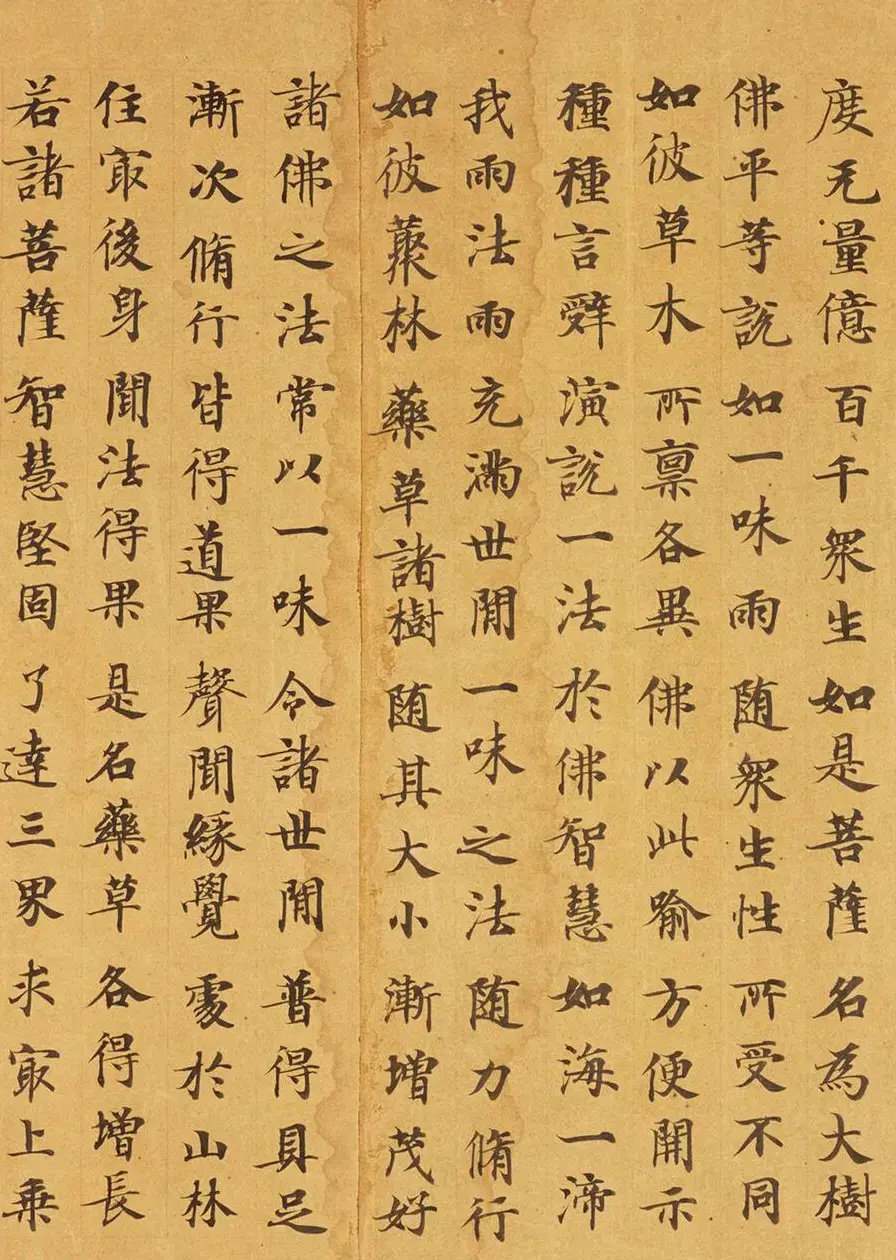 度无量億百千衆生如是菩薩名為大樹
佛平等說如一味雨随衆生性所受不同
如彼草木所禀各異佛以此喻方便開示
種種言辤演說一法於佛智慧如海一渧
我雨法雨充滿世間一味之法随力脩行
如彼藂林藥草諸樹随其大小漸增茂好
諸佛之法常以一味令諸世間普得具足
漸次脩行皆得道果聲聞緣覺處於山林
住冣後身聞法得果是名藥草各得增長
若諸菩薩智慧堅固了達三界求冣上乗